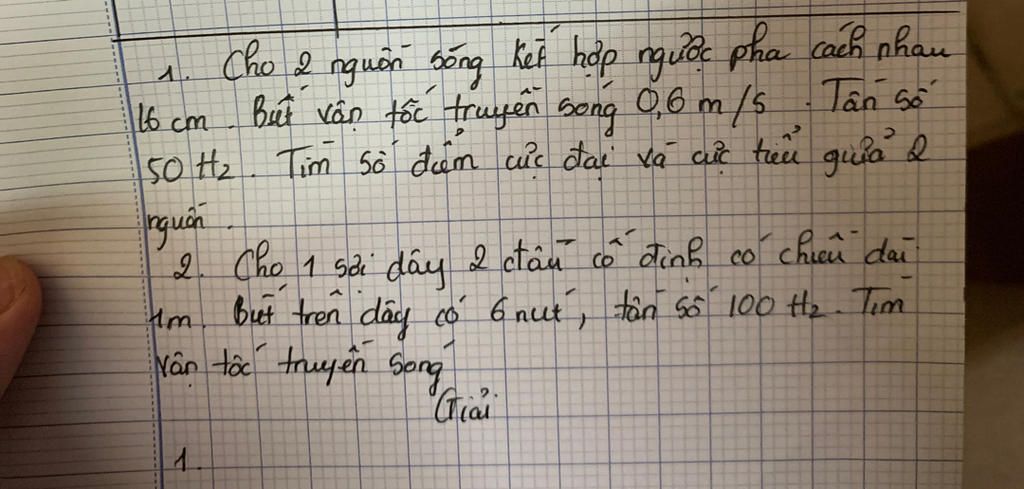 1. Cho 2 nguồn sóng kết hợp ngược pha cách nhau
16 cm. Biết vận tốc truyền sóng 0,6 m/s. Tần số
50 Hz. Tìm số điểm cực đại và cực tiểu giữa 2
nguồn.
2. Cho 1 sợi dây 2 đầu cố định có chiều dài
1m. Biết trên dây có 6 nút, tần số 100 Hz. Tìm
vận tốc truyền sóng
Giải
1.